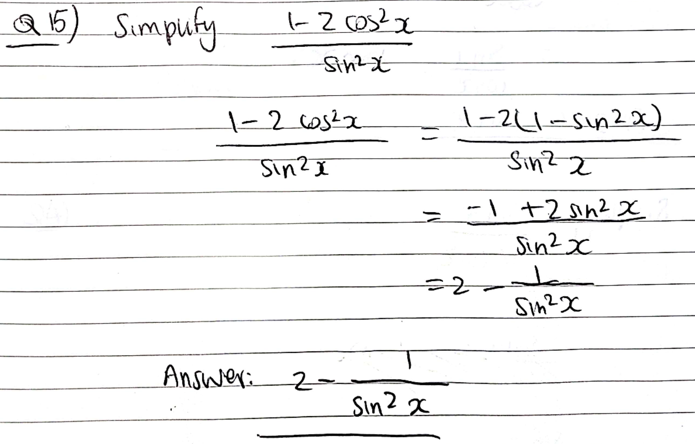 Q 15) Simplify (1 - 2 cos²x) / (sin²x)
(1 - 2 cos²x) / (sin²x) = (1 - 2(1 - sin²x)) / (sin²x)
= (-1 + 2 sin²x) / (sin²x)
= 2 - 1 / (sin²x)
Answer: 2 - 1 / (sin²x)